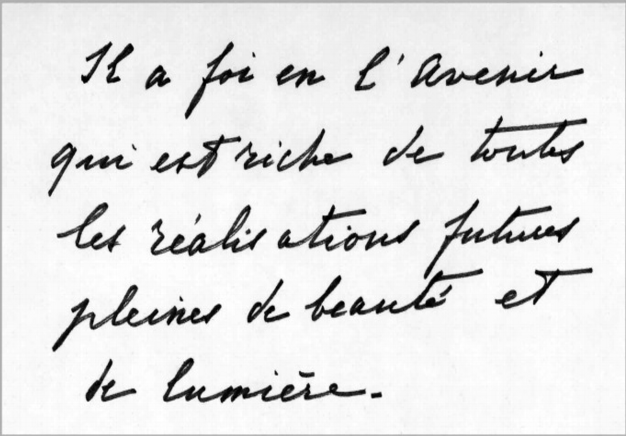 Il a foi en l'avenir
qui est riche de toutes
les réalisations futures
pleines de beauté et
de lumière.